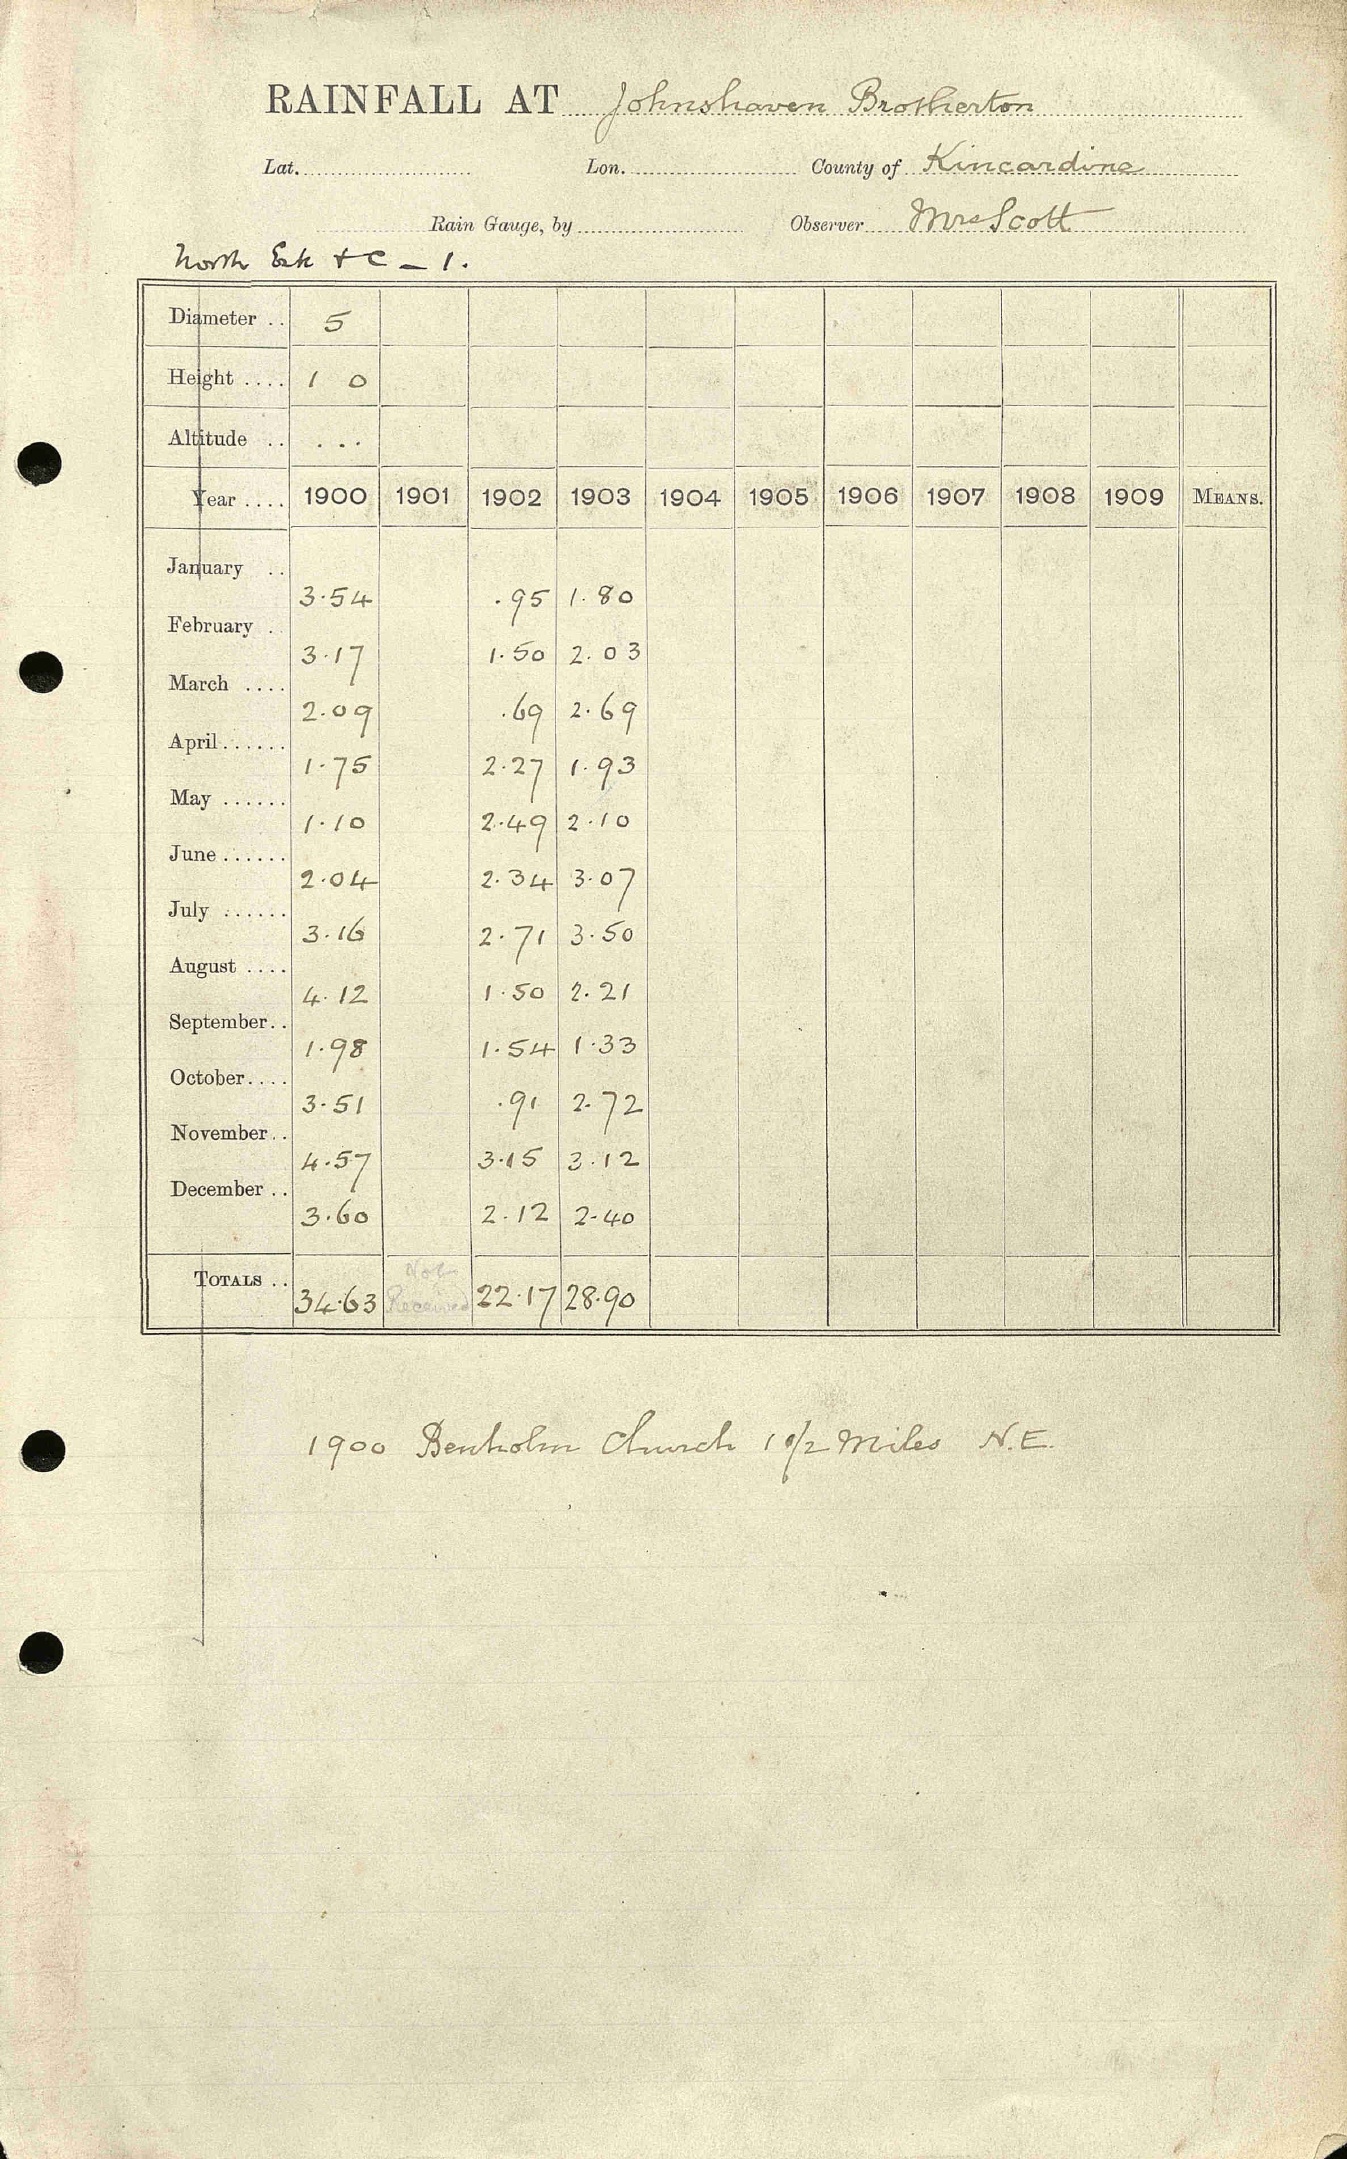 RAINFALL AT Johnshaven Brotherton
Lat. Lon. County of Kincardine
Rain Gauge, by Observer Mrs Scott
North Esk & C - 1.
Diameter .. 5
Height .... 1 0
Altitude .. ...
Year .... 1900 1901 1902 1903 1904 1905 1906 1907 1908 1909 MEANS.
January .. 3.54 .95 1.80
February . 3.17 1.50 2.03
March .... 2.09 .69 2.69
April...... 1.75 2.27 1.93
May ...... 1.10 2.49 2.10
June...... 2.04 2.34 3.07
July ...... 3.16 2.71 3.50
August .... 4.12 1.50 2.21
September.. 1.98 1.54 1.33
October.... 3.51 .91 2.72
November.. 4.57 3.15 3.12
December .. 3.60 2.12 2.40
TOTALS .. 34.63 Not Received 22.17 28.90
1900 Benholm Church 1 1/2 Miles N.E.